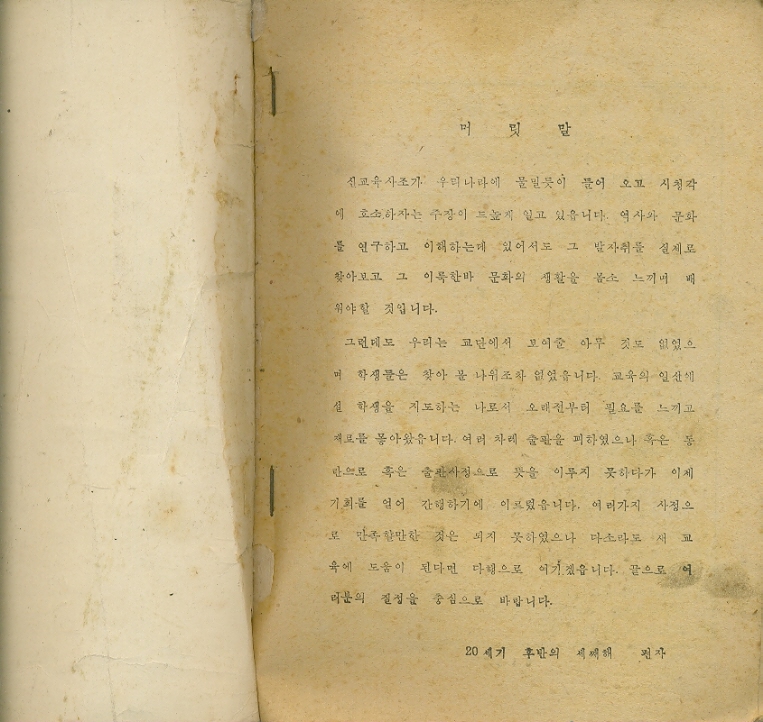 머 릿 말
신교육사조가 우리나라에 물밀듯이 들어 오고 시청각
에 호소하자는 주장이 드높게 일고 있읍니다. 역사와 문화
를 연구하고 이해하는데 있어서도 그 발자취를 실제로
찾아보고 그 이룩한바 문화의 생활을 몸소 느끼며 배
워야할 것입니다.
그런데도 우리는 교단에서 보여줄 아무 것도 없었으
며 학생들은 찾아 볼 나위조차 없었읍니다. 교육의 일선에
선 학생을 지도하는 나로서 오래전부터 필요를 느끼고
재료를 몽아왔읍니다. 여러 차례 출판을 꾀하였으나 혹은 동
란으로 혹은 출판사정으로 뜻을 이루지 못하다가 이제
기회를 얻어 간행하기에 이르렀읍니다. 여러가지 사정으
로 만족할만한 것은 되지 못하였으나 다소라도 새 교
육에 도움이 된다면 다행으로 여기겠읍니다. 끝으로 여
러분의 질정을 충심으로 바랍니다.
20세기 후반의 세째해 편자